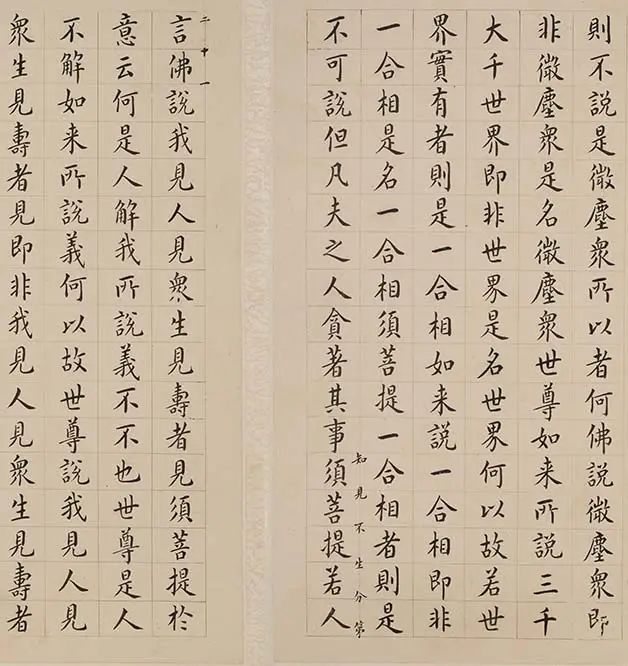 則不說是微塵衆所以者何佛說微塵衆即
非微塵衆是名微塵衆世尊如来所說三千
大千世界即非世界是名世界何以故若世
界實有者則是一合相如来說一合相即非
一合相是名一合相須菩提一合相者則是
不可說但凡夫之人貪著其事須菩提若人
知見不生分第
二十一
言佛說我見人見衆生見壽者見須菩提於
意云何是人解我所說義不不也世尊是人
不解如来所說義何以故世尊說我見人見
衆生見壽者見即非我見人見衆生見壽者